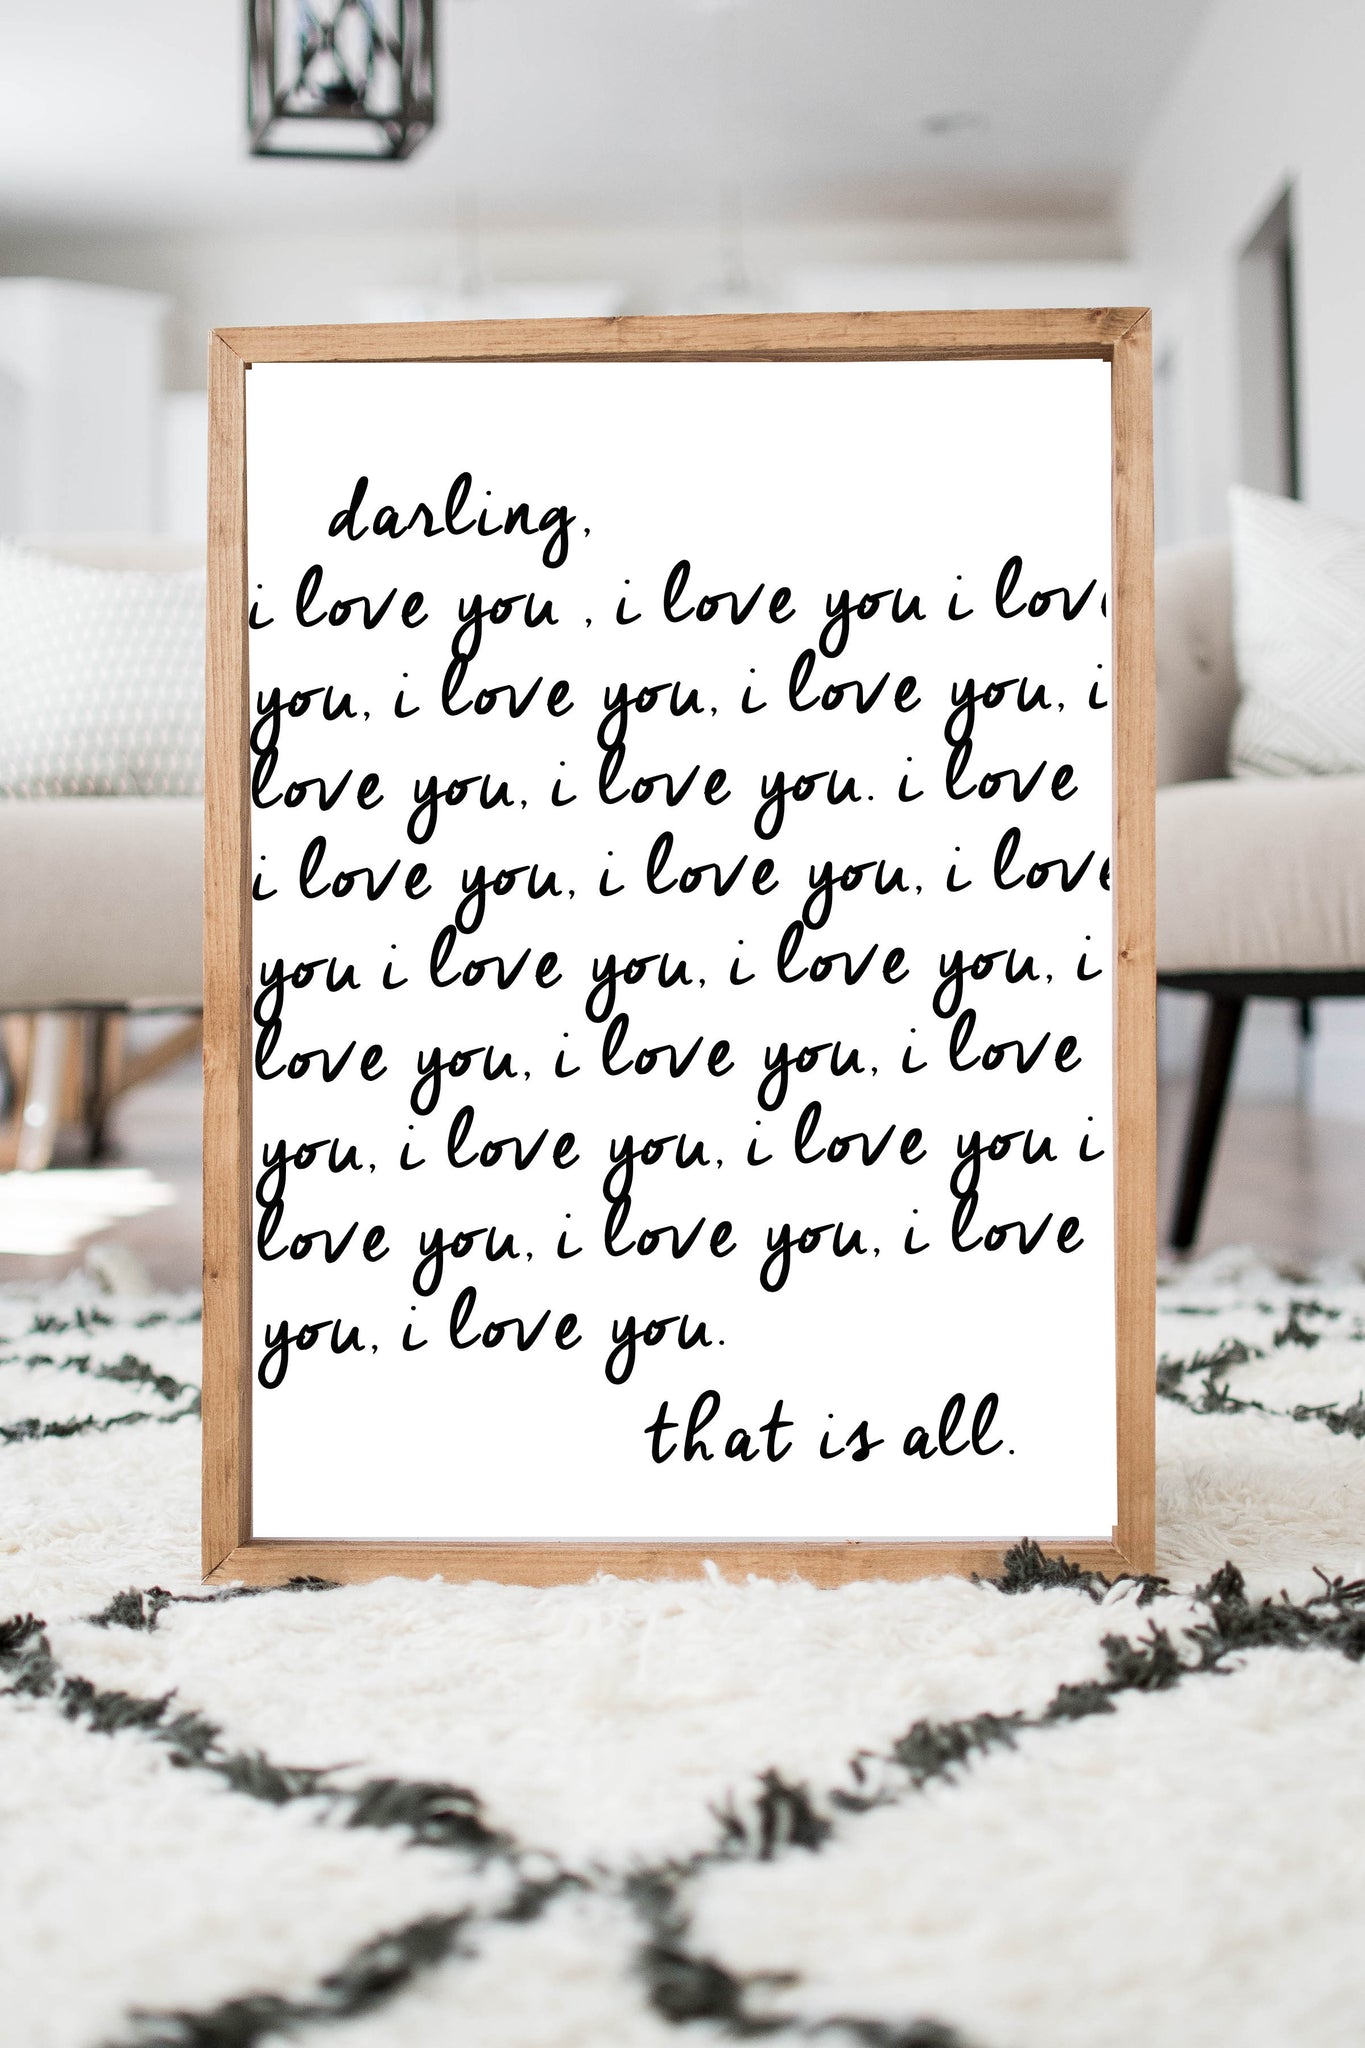 darling,
i love you , i love you i love
you, i love you, i love you, i
love you, i love you. i love
i love you, i love you, i love
you i love you, i love you, i
love you, i love you, i love
you, i love you, i love you i
love you, i love you, i love
you, i love you.
that is all.